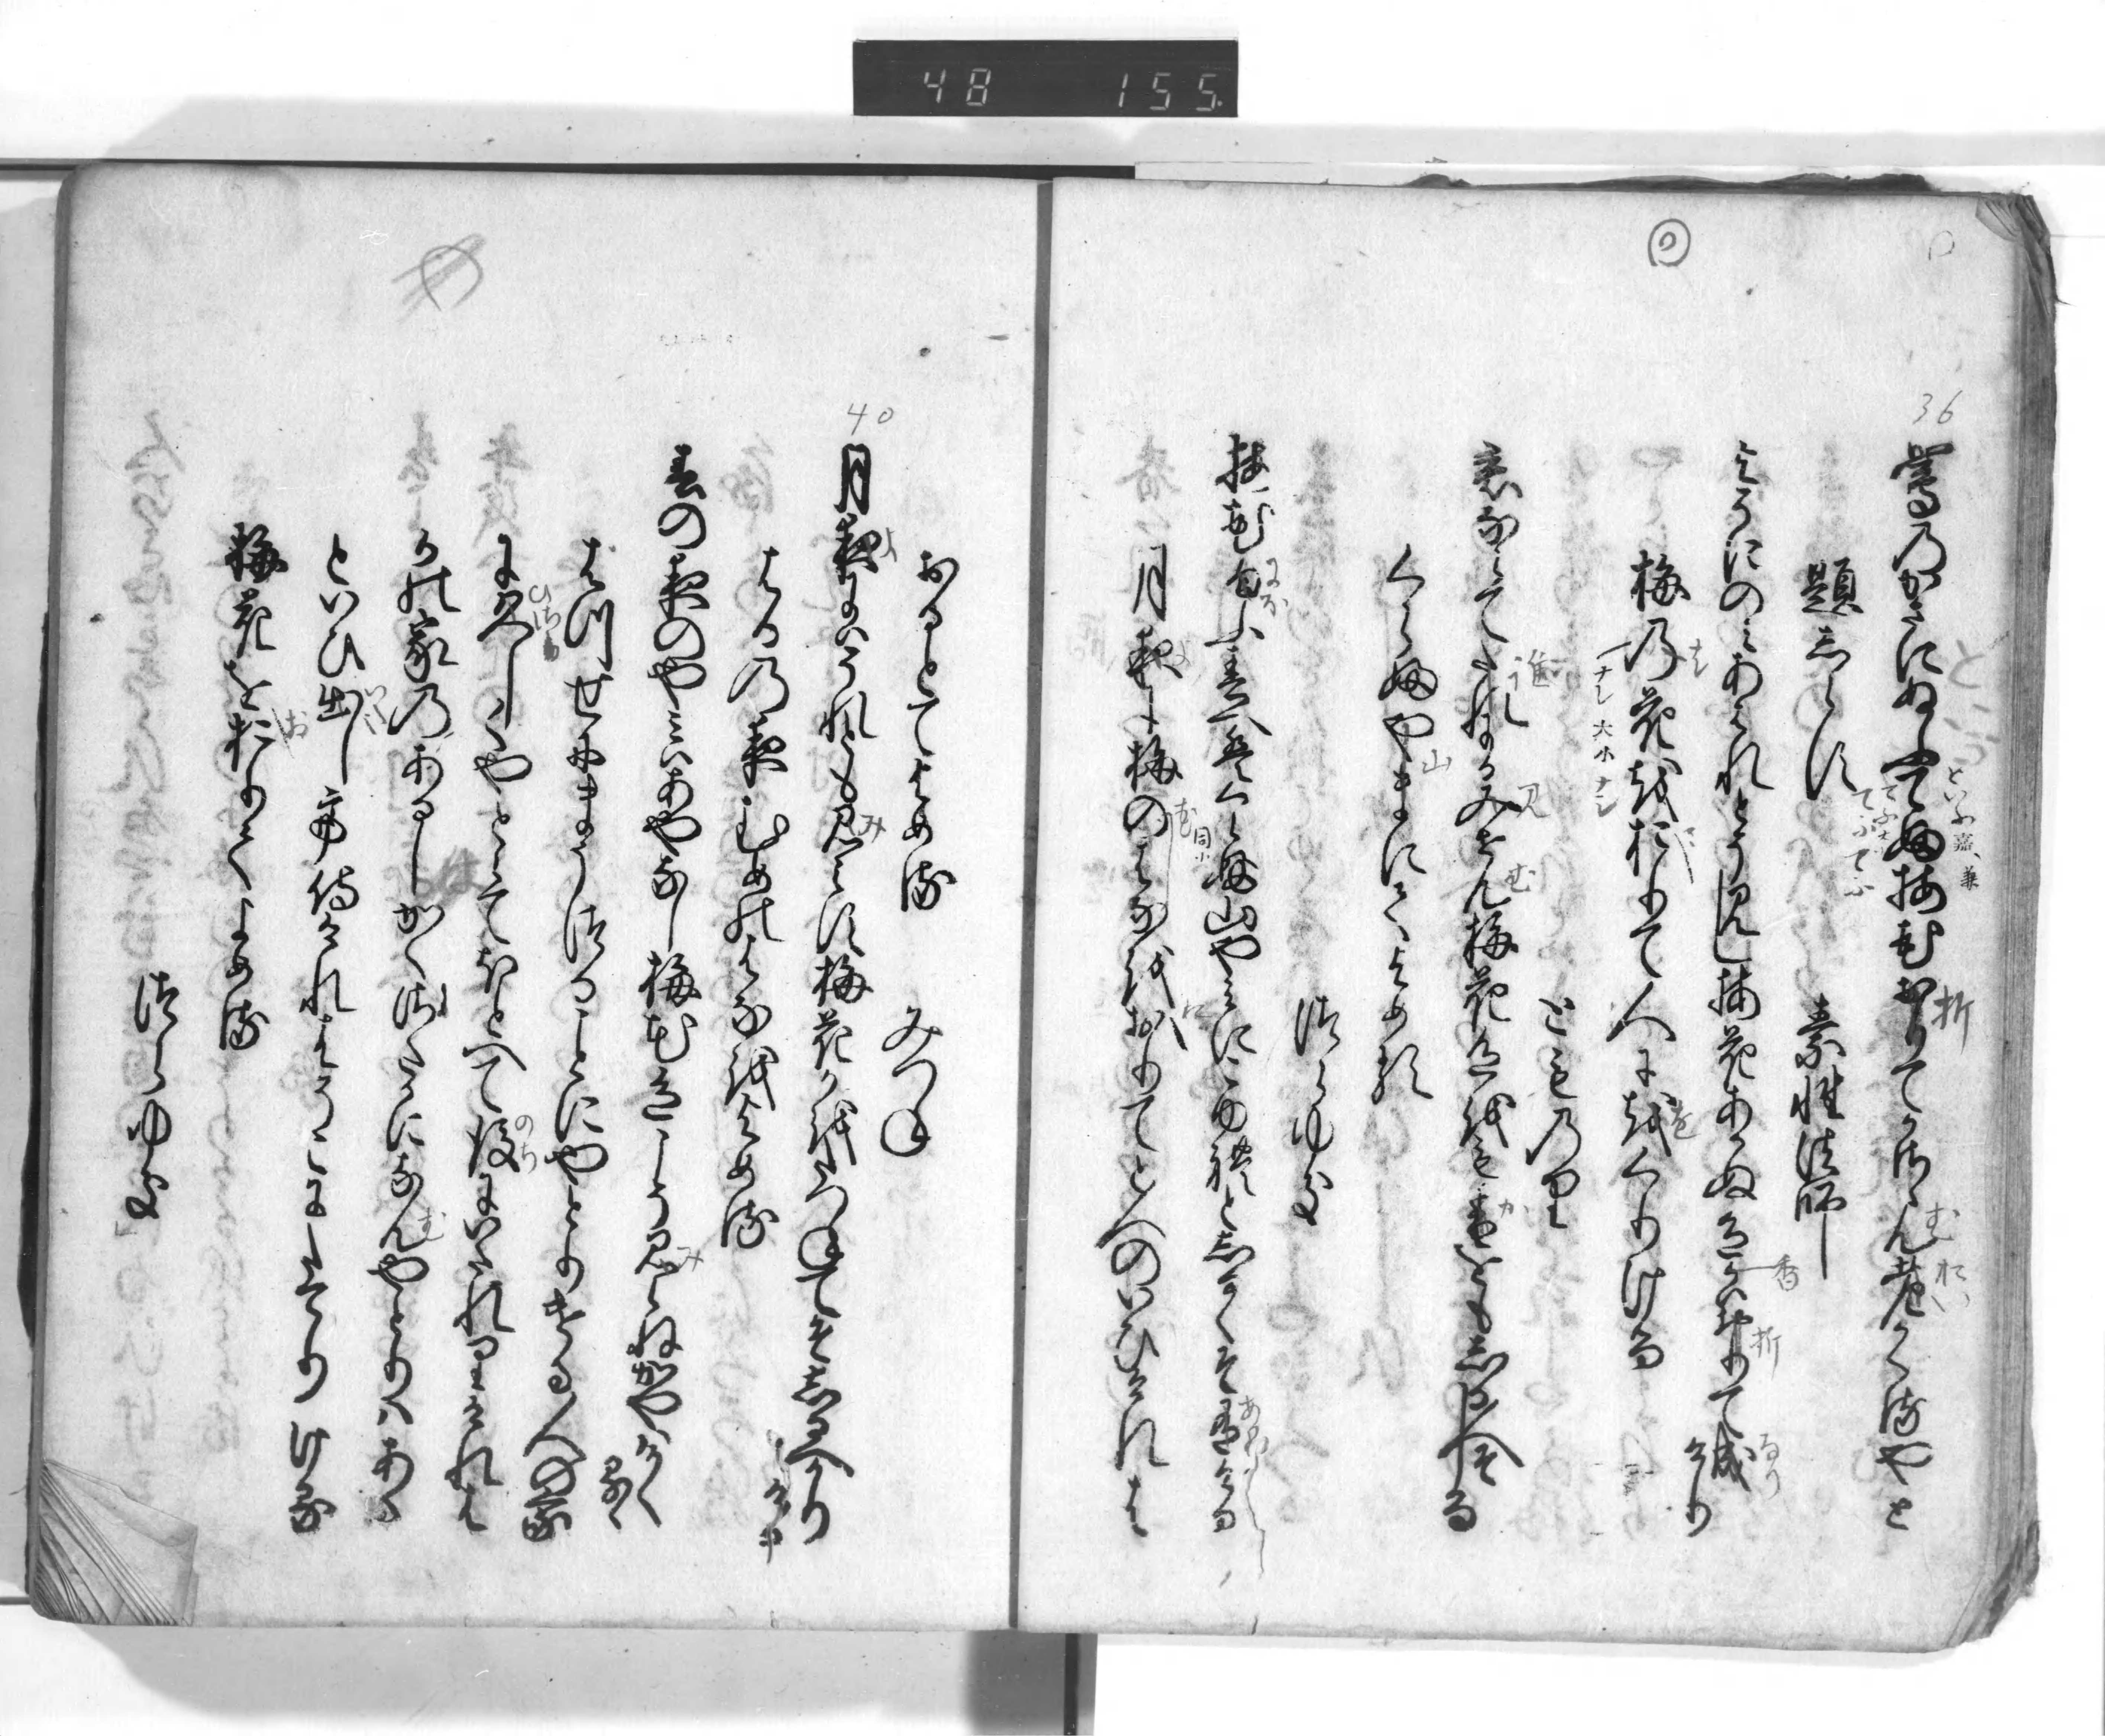 48 155.
36
鶯乃かさにぬふてふ梅花おりてかさゝん老かくるやと
題しらす
素性法師
よそにのみあはれとそ見し梅花あかぬ色かはおりて成けり
梅乃花越おりて人に越くりける
とものり
君ならて誰にかみせん梅花色越もか越もしる人そしる
くらふ山にてよめる
つらゆき
梅花匂ふ春へはくらふ山やみにこゆれとしるくそ有ける
月夜に梅のはな越おりてと人のいひけれは
おるとてよめる
みつね
40
月夜にはそれとも見えす梅花か越たつねてそしるへかりける
はる乃夜むめのはな越よめる
春の夜のやみはあやなし梅花色こそ見えねかやはかくるゝ
はつせにまうつることにやとりける人の家
に久しくやとらてほとへて後にいたれりけれは
かの家乃あるしかくさたかになんやとりはある
といひ出して侍けれはそこにたてりける
梅花をおりてよめる
つらゆき